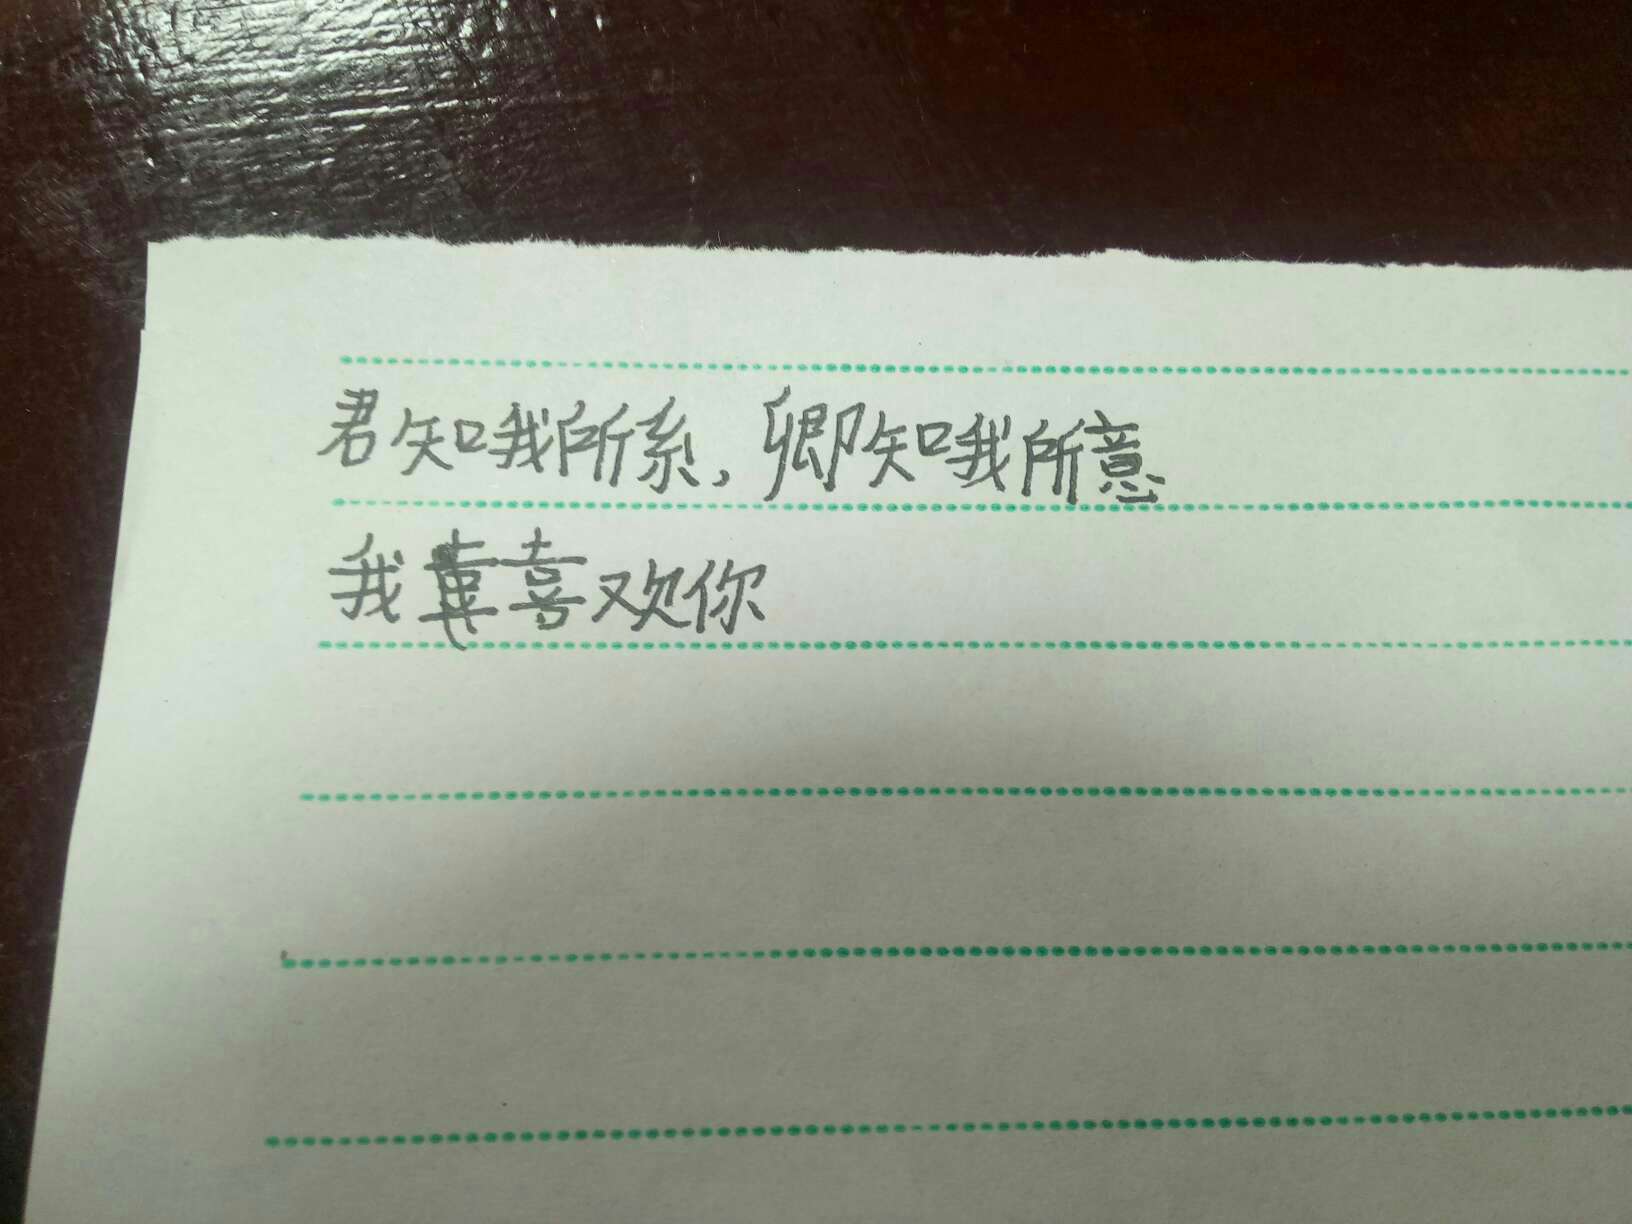 君知我所系，卿知我所意
我喜欢你